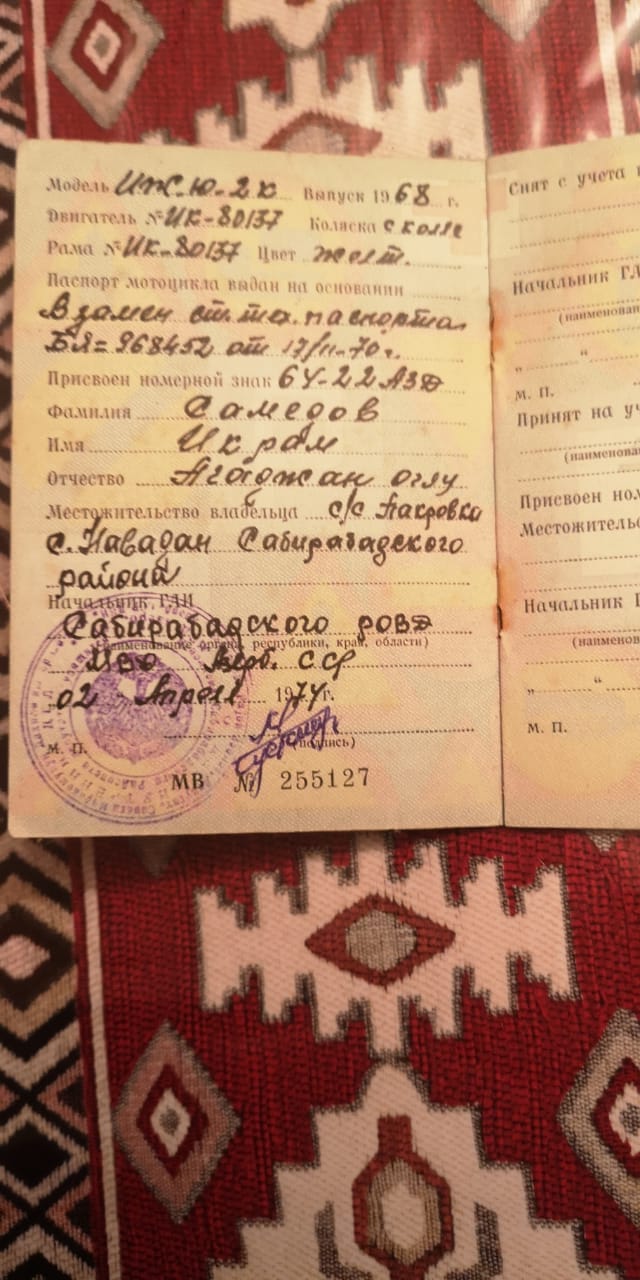 Модель ИЖ.Ю-2К Выпуск 1968 г.
Двигатель № ИК-80137 Коляска с коляс
Рама № ИК-80137 Цвет желт.
Паспорт мотоцикла выдан на основании
Взамен ст. тех. паспорта
БЯ=968452 от 17/11-70г.
Присвоен номерной знак 64-22 АЗД
Фамилия Самедов
Имя Икрам
Отчество Агабожан оглу
Местожительство владельца с/с Пакровка
с. Навадан Сабирабадского
района
Начальник ГАИ
Сабирабадского РОВД
(наименование органа, республики, края, области)
МВД Азерб. ССР
02 Апреля 1974 г.
М. П. (подпись)
МВ № 255127
Снят с учета
Начальник
(наименован
„ “
М. П.
Принят на уч
(наименова
Присвоен ном
Местожительс
Начальник
(наимено
„ “
М. П.